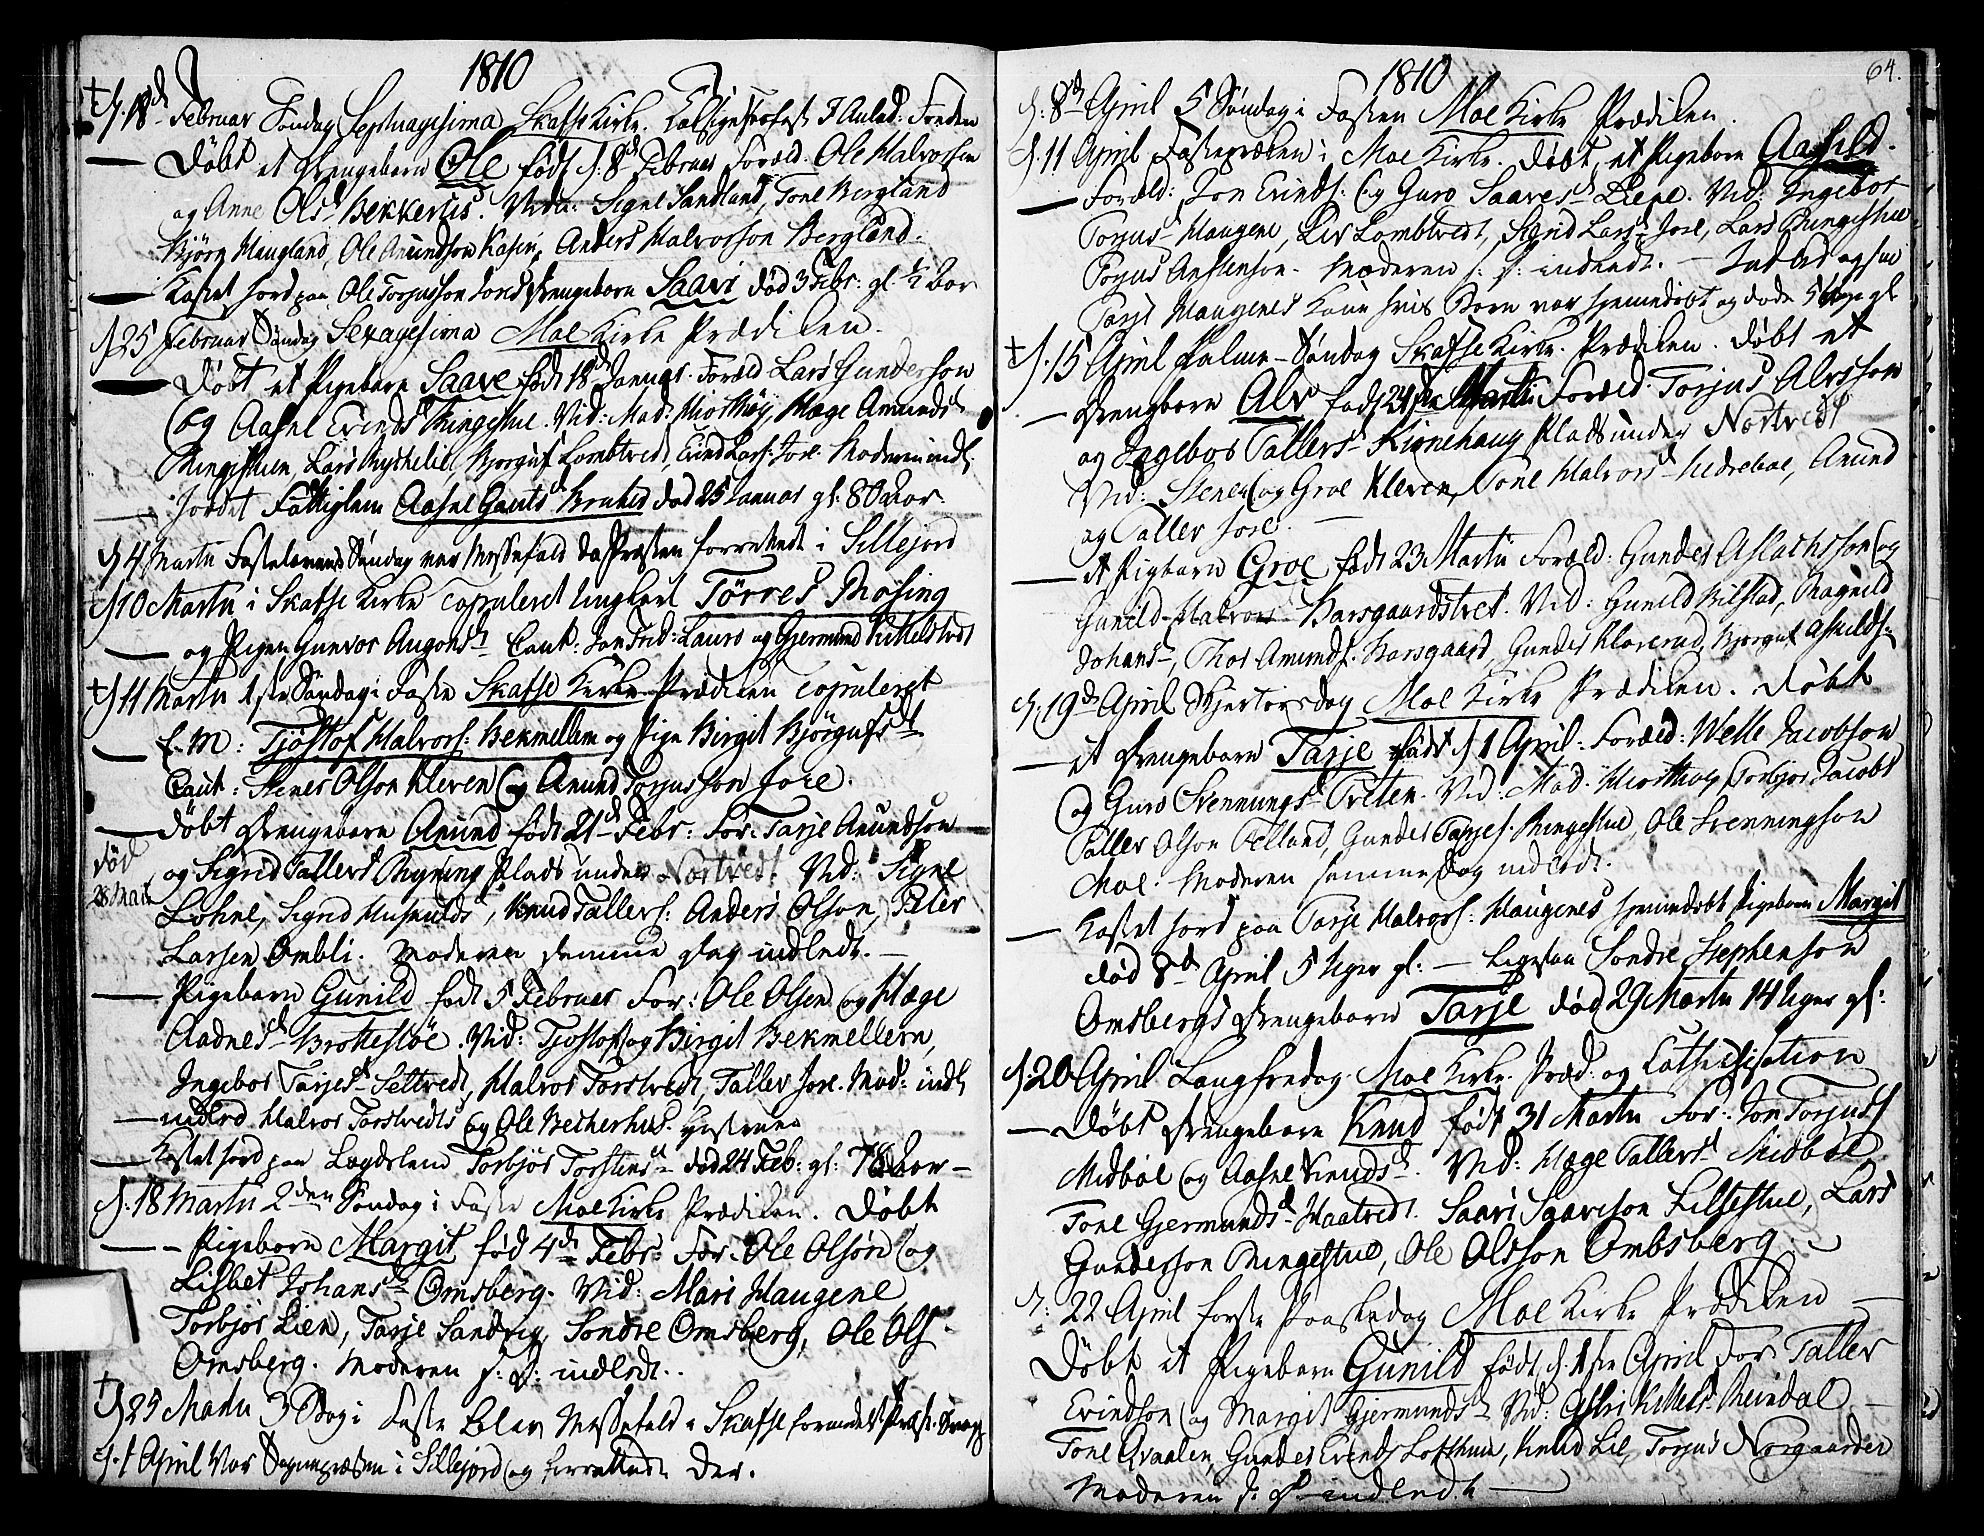 1810
d. 18de Februar Søndag Septuagesima Skafse Kirke.
Døbt et Drengebarn Ole født d. 8de Februar Foræld: Ole Halvorsen
og Anne Olsd Bekkerus. Vidn: Signe Sandland, Tone Bergland
Bjørg Haugland, Ole Amundson Kasin, Anders Halvorson Bergland.
Kastet Jord paa Ole Torjusson Drengebarn Saavi død 3 Febr: gl. 1/2 Aar
d 25 Februar Søndag Sexagesima Moe Kirke Prædiken.
Døbt et Pigebarn Saave født 18de Januar. Foræld Lars Gunderson
og Aasne Evindsd Ringestue. Vid: Mad: Morthøy, Hæge Amundsd
Ringestuen, Lars Byttelie, Bjorguf Lombtvedt, Evind Lars: Jore. Moderen indl.
Jordet Fattiglem Aasne Gautsd død 25 Januar gl: 80 Aar
d 4 Martii Fastelavens Søndag var Messefald da Præsten forrettede i Sillejord
d 10 Martii i Skafse Kirke copuleret Ungkarl Tørres Bøsing
og Pigen Gunvor Aagonsd Caut: Jon Frid: Lauro og Gjermund Kittelstvedt
d 11 Martii 1ste Søndag i Faste Skafse Kirke Prædiken copuleret
E. M: Tjøstof Halvors: Bekmellem og Pige Birgit Bjørgufsd
Caut: Stener Olson Kleven og Amund Torjusson Jore.
Døbt Drengebarn Anund født 21de Febr: For: Tarje Anundson
Død
og Sigrid Tallersd Rysning Plads under Nortvedt Vid: Signe
Lohne, Sigrid Husmulds, Knud Tallers: Anders Olson, Peter
Larsen Ombli. Moderen samme Dag indledt.
Pigebarn Gunild født 5 Februar For: Ole Olsen og Hæge
Aadnesd Brottesløe. Vid: Tjostof og Birgit Bekmellem,
Ingebor Tarjesd Seltvedt, Halvor Torstvedt, Taller Jore. Mod: indl
indlod Halvor Torstvedts og Ole Betherhus Hustruer
Kastet Jord paa Lægdslem Torbjør Torstensd død 24 Feb: gl: 78 Aar
d. 18 Martii 2den Søndag i Faste Moe Kirke Prædiken. Døbt
Pigebarn Margit, fød 4de Febr: For: Ole Olson og
Lisbet Johansd Omsberg. Vid: Mari Haugene
Torbjør Lien, Tarje Sandvig, Sondre Omsberg, Ole Ols
Omsberg. Moderen s: D: indledt.
d 25 Martii 3 Sdag i Faste blev Messefald i Skafse
d. 1 April Var Sognepræsten i Sillejord og forrettede der.
1810
64.
d. 8de April 5 Søndag i Fasten Moe Kirke Prædiken.
d. 11 April Fasteprædken i Moe Kirke. Døbt et Pigebarn Aasild.
Foræld: Jon Evinds: og Guro Saavesd Liene. Vid: Ingebor
Torjusd Haugene, Liv Lombtvedt, Sigrid Larsd Jore, Lars Ringestue
Torjus Anstenson. Moderen s: D: indledt.
Tarje Haugenes Kone hvis Barn var hjemmedøbt og døde 5 Uger gl
d. 15 April Palme-Søndag Skafse Kirke. Prædiken. Døbt et
Drengbarn Alv født 24de Martii Foræld. Torjus Alvsson
og Ingebor Tallersd Kirnehaug Plads under Nortvedt
Vid: Stener og Groe Kleven, Tone Halvorsd Nedreboe, Amund
og Taller Jore.
et Pigbarn Groe født 23 Martii Foræld: Gunder Aslachsson og
Gunild Halvorsd Barsgaardstret. Vid: Gunild Bilstad, Ragnild
Johansd, Thor Amunds. Barsgaard, Gunder Klovrud, Bjorguf Asmilds
d. 19de April Skjertorsdag Moe Kirke Prædiken. Døbt
et Drengebarn Tarje født d 1 April. Foræld: Welle Jacobson
og Guro Svenningsd Treten. Vid: Mad. Morthøy, Torbjør Jacobsd
Taller Olson Felland, Gunder Tarjes. Ringestue, Ole Svenningson
Moe. Moderen samme Dag indledt.
Kastet Jord paa Tarje Halvors: Haugenes hjemmedøbt Pigebarn Margit
død 8de April 5 Uger gl: — Ligesaa Sondre Stephenson
Omsbergs Drengebarn Tarje død 29 Martii 14 Uger gl:
d 20 April Langfredag Moe Kirke Præd: og Cathechisation
Døbt Drengebarn Knud født 31 Martii For: Jon Torjuss
Midboe og Aasne Knudsd. Vid: Hæge Tallersd Midboe
Tone Gjermundsd Haatvedt. Saavi Saavison Lillestue, Lars
Gunderson Ringestue, Ole Olsson Ombsberg.
d. 22 April første Paaskedag Moe Kirke Prædiken
Døbt et Pigebarn Gunild født d. 1ste April For Taller
Evindson og Margit Gjermundsd Vid: Kittelsd Reindal
Tone Qvaalen, Gunder Evinds Lofthuus, Knud Lie, Torjus Norgaarden
Moderen s: D indledt